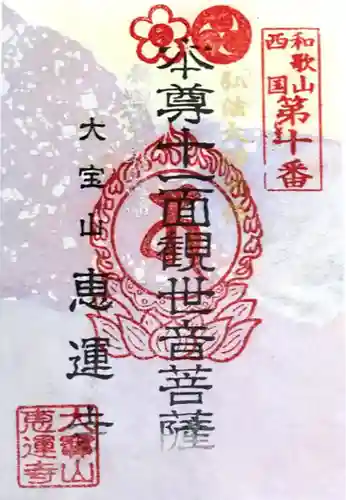 和歌山
西国
第十番
本尊十一面観世音菩薩
大宝山
恵運寺
大宝山
恵運寺